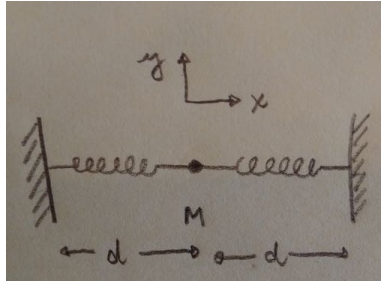 y
x
M
d d